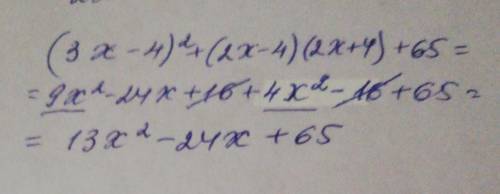 (3x-4)²+(2x-4)(2x+4)+65=
=9x²-24x+16+4x²-16+65=
=13x²-24x+65